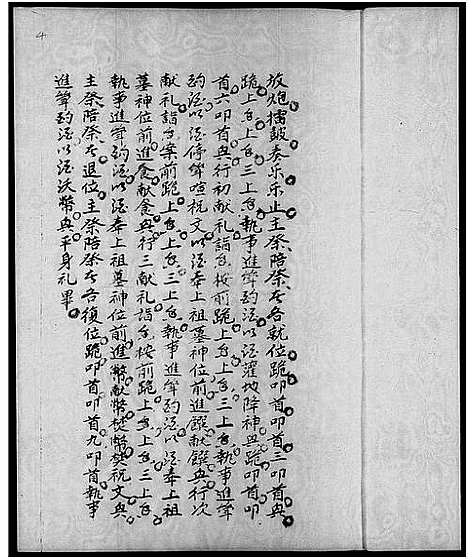 4
放炮擂鼓奏乐乐止主祭陪祭者各就位跪叩首叩首三叩首兴
跪上香上香三上香执事進斝酌酒以酒灌地降神兴跪叩首叩
首六叩首兴行初献礼詣香案前跪上香上香三上香执事進斝
酌酒以酒停斝宣祝文以酒奉上祖墓神位前進饌献饌兴行次
献礼詣香案前跪上香上香三上香执事進斝酌酒以酒奉上祖
墓神位前進食献食兴行三献礼詣香案前跪上香上香三上香
执事進斝酌酒以酒奉上祖墓神位前進帛献帛焚帛焚祝文兴
主祭陪祭者退位主祭陪祭者各復位跪叩首叩首九叩首执事
進斝酌酒以酒沃帛兴平身礼畢